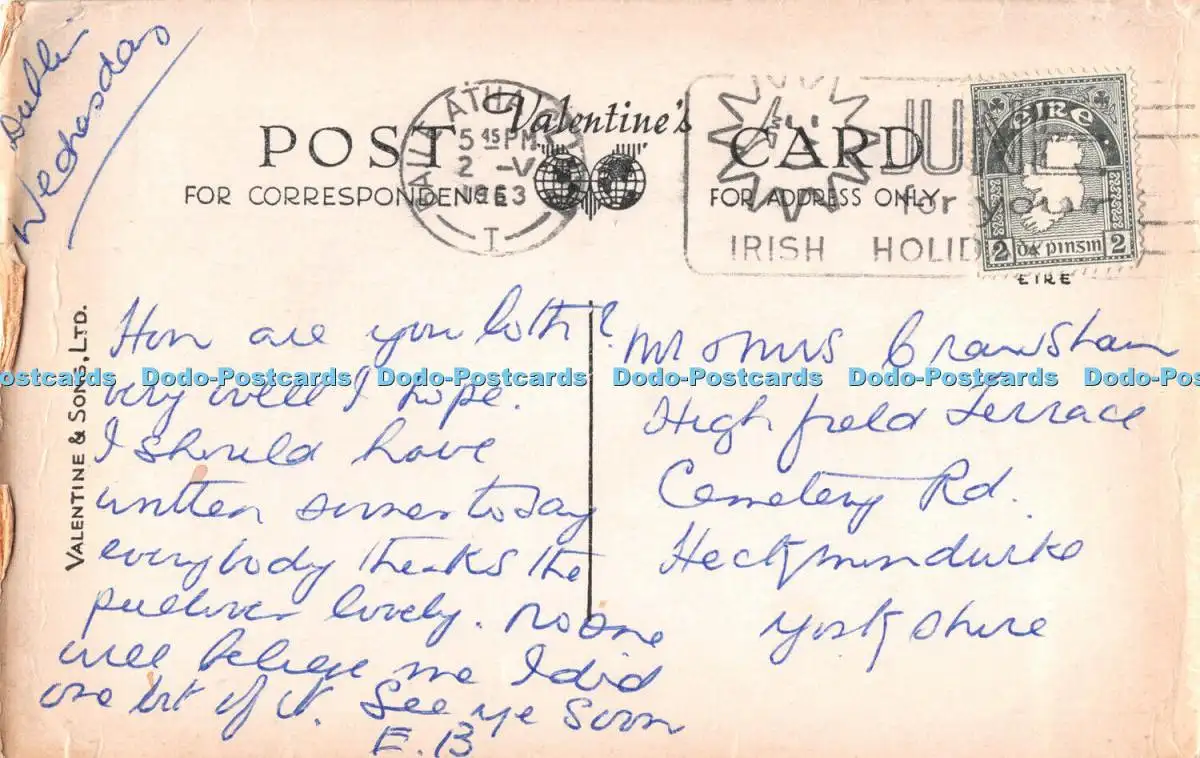 Dublin
Wednesday
Valentine's
POST CARD
FOR CORRESPONDENCE
FOR ADDRESS ONLY
BAILE ATHA
5 45 PM
2 - V
1953
T
JUNE
for your
IRISH HOLID
éire
2 dá pinsin 2
EIRE
VALENTINE & SONS, LTD.
How are you both?
very well I hope.
I should have
written sooner today
everybody thinks the
pullover lovely. No one
will believe me I did
one bit of it. See ye soon
E.B
Mr & Mrs Crawshaw
Highfield Terrace
Cemetery Rd.
Heckmondwike
Yorkshire
Dodo-Postcards Dodo-Postcards Dodo-Postcards Dodo-Postcards Dodo-Postcards Dodo-Postcards